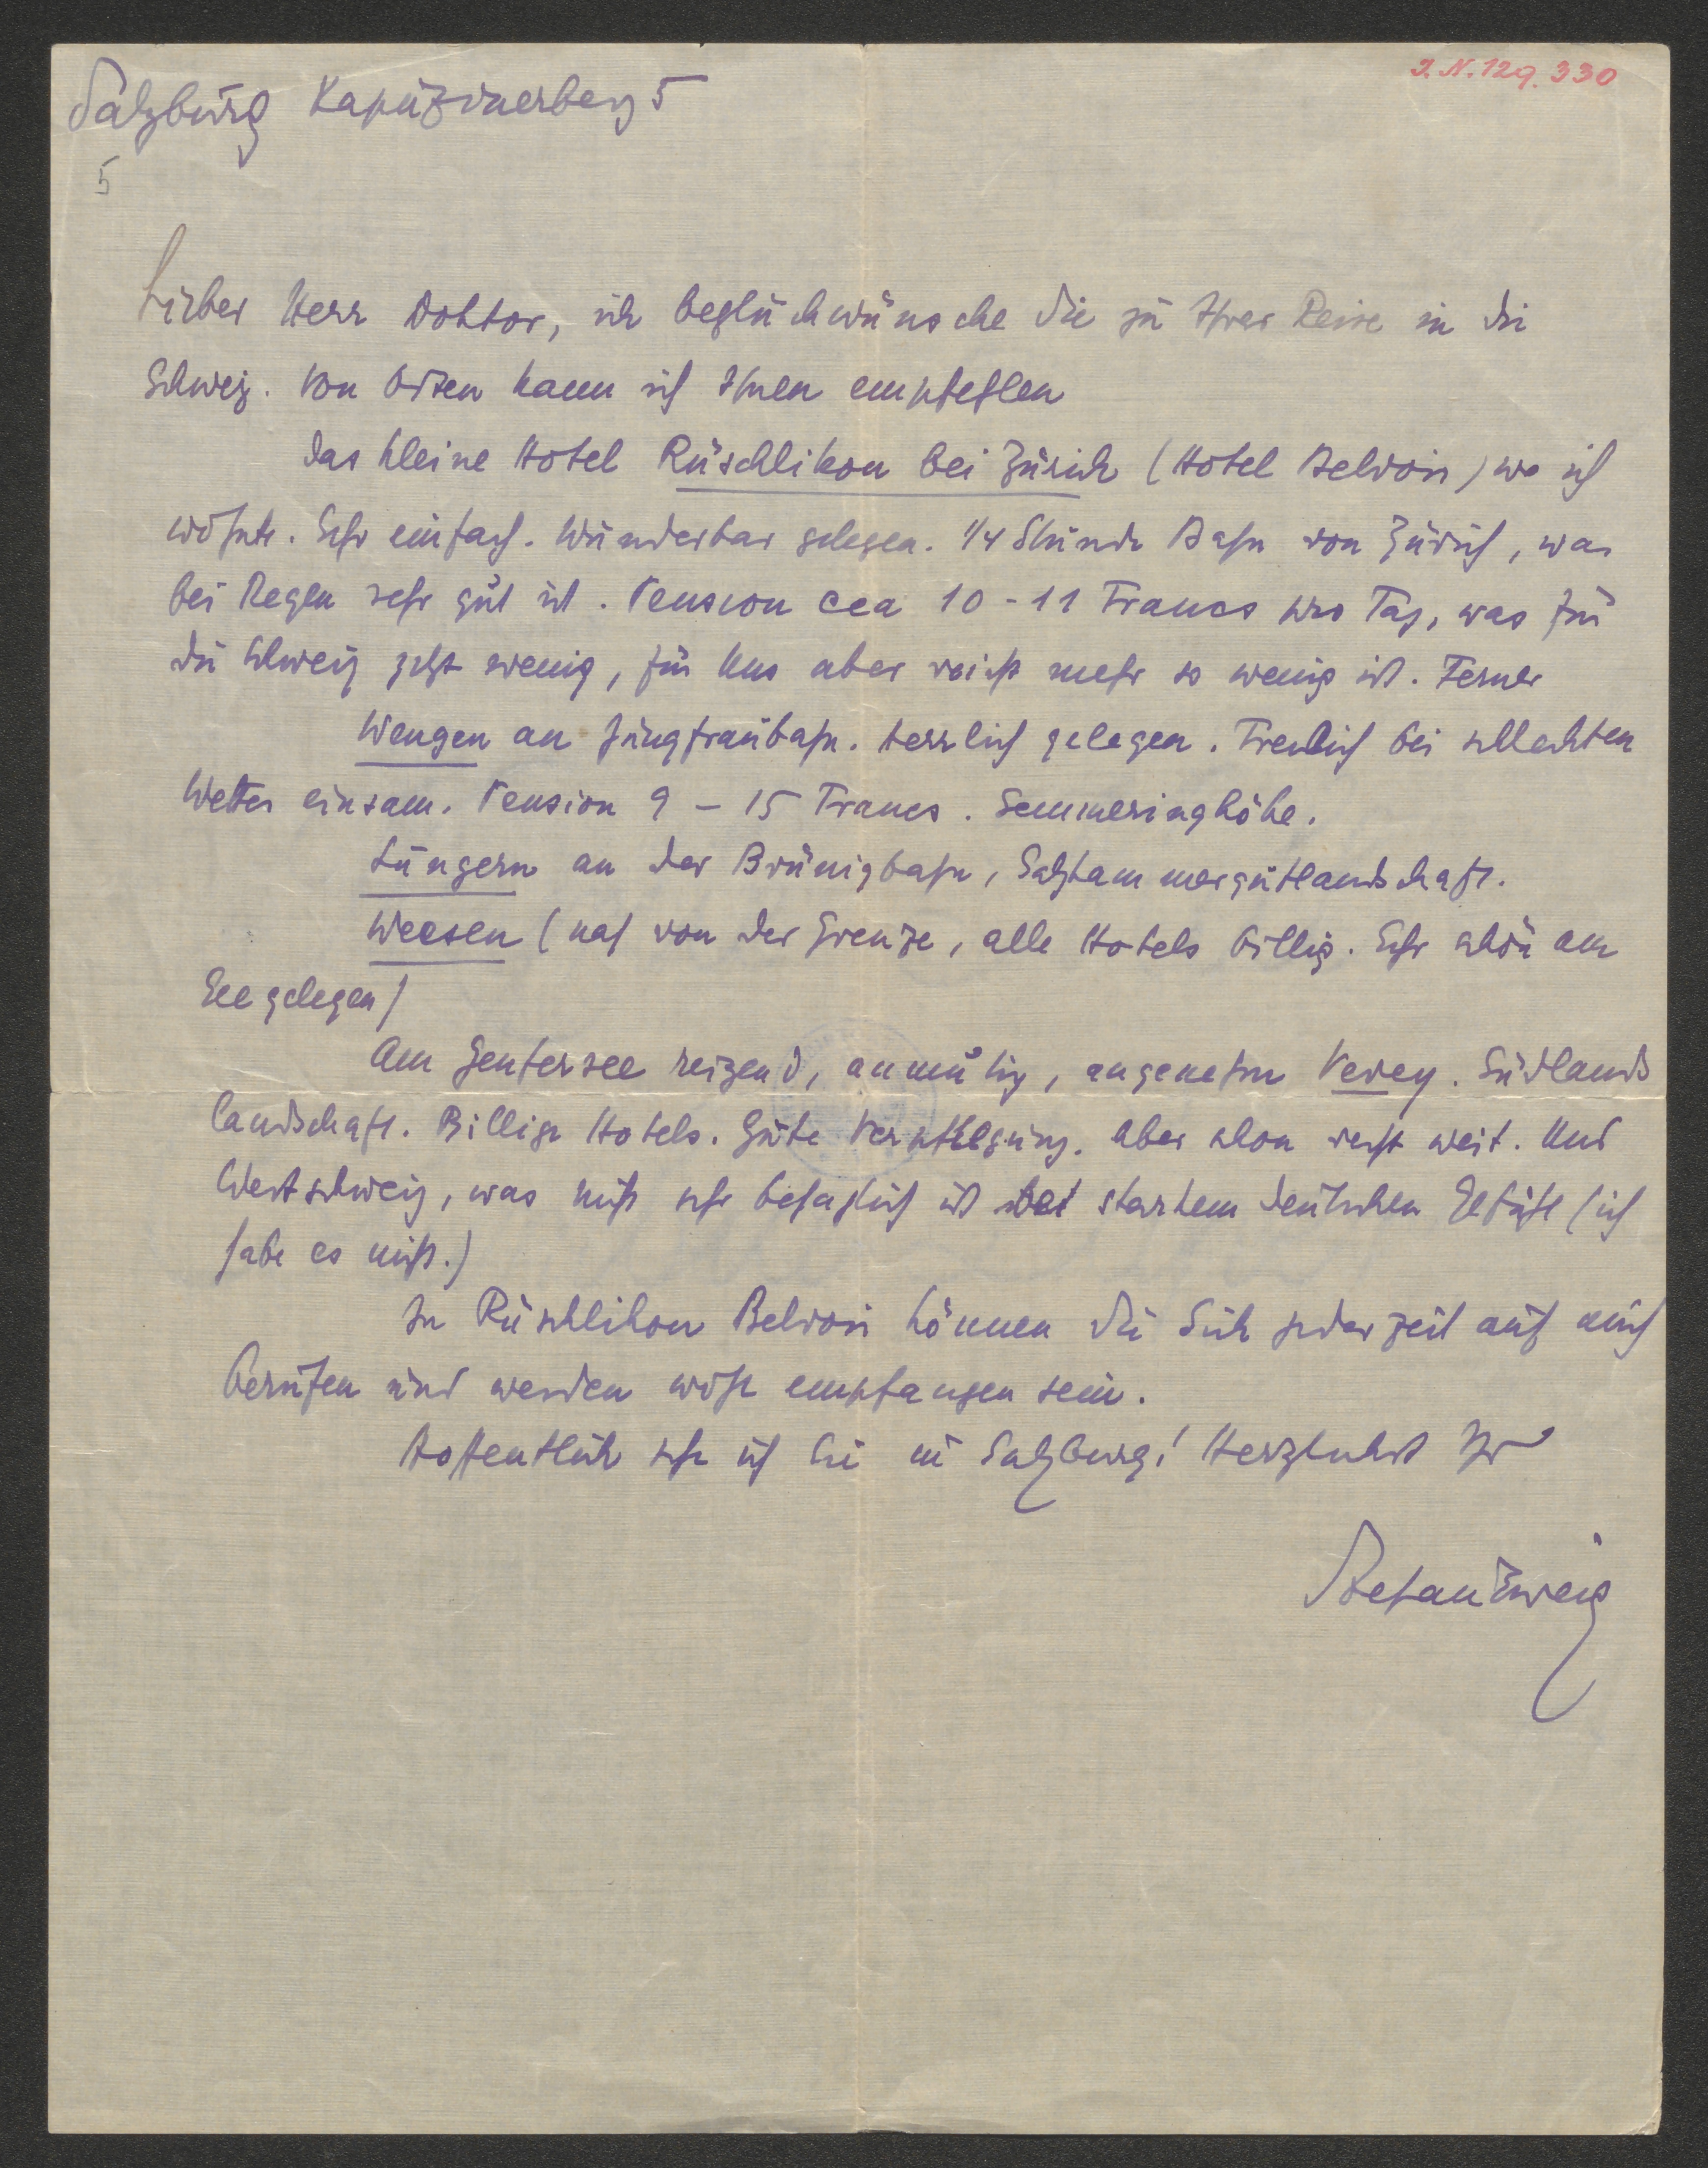 I. N. 129.330
Salzburg Kapuzinerberg 5
5
Lieber Herr Doktor, ich beglückwünsche Sie zu Ihrer Reise in die
Schweiz. Von Orten kann ich Ihnen empfehlen
das kleine Hotel Rüschlikon bei Zürich (Hotel Belvoir) wo ich
wohnte. Sehr einfach. Wunderbar gelegen. 1/4 Stunde Bahn von Zürich, was
bei Regen sehr gut ist. Pension cca 10-11 Francs pro Tag, was für
die Schweiz jetzt wenig, für uns aber nicht mehr so wenig ist. Ferner
Wengen an Jungfraubahn. Herrlich gelegen. Freilich bei schlechten
Wetter einsam. Pension 9 – 15 Francs. Semmeringhöhe.
Lungern an der Brünigbahn, Salzkammergutlandschaft.
Weesen (nah von der Grenze, alle Hotels billig. Sehr schön am
See gelegen)
Am Genfersee reizend, anmutig, angenehm Vevey. Südlands
landschaft. Billige Hotels. Gute Verpflegung. Aber schon recht weit. Und
Westschweiz, was nicht sehr behaglich ist bei starkem deutschen Gefühl (ich
habe es nicht.)
In Rüschlikon Belvoir können Sie Sich jederzeit auf mich
berufen und werden wohl empfangen sein.
Hoffentlich sehe ich Sie in Salzburg! Herzlichst Ihr
Stefan Zweig